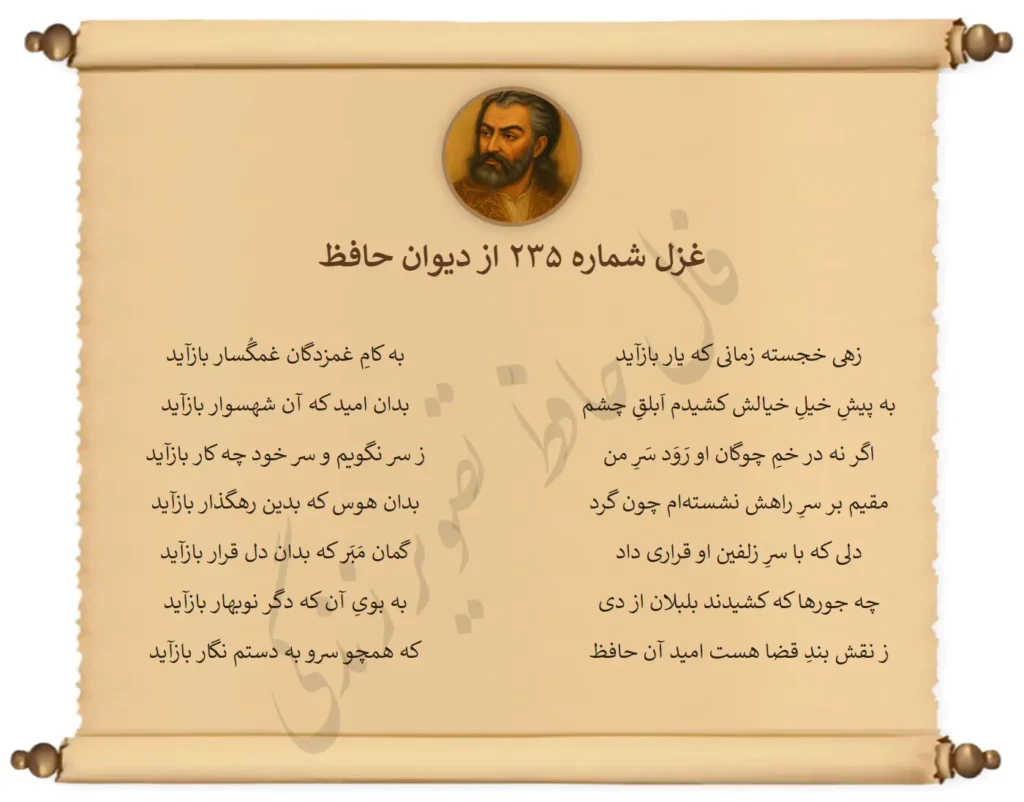 غزل شماره ۲۳۵ از دیوان حافظ
زهی خجسته زمانی که یار بازآید
به کامِ غمزدگان غمگُسار بازآید
به پیشِ خیلِ خیالش کشیدم اَبلقِ چشم
بدان امید که آن شهسوار بازآید
اگر نه در خمِ چوگان او رَوَد سَرِ من
ز سر نگویم و سر خود چه کار بازآید
مقیم بر سرِ راهش نشسته‌ام چون گرد
بدان هوس که بدین رهگذار بازآید
دلی که با سرِ زلفین او قراری داد
گمان مَبَر که بدان دل قرار بازآید
چه جورها که کشیدند بلبلان از دی
به بویِ آن که دگر نوبهار بازآید
ز نقش بندِ قضا هست امید آن حافظ
که همچو سرو به دستم نگار بازآید
فال حافظ تصویر زندگی